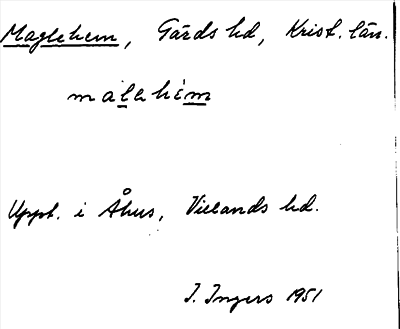 Maglehem, Gärds hd, Krist. län.
malehém
Uppt. i Åhus, Villands hd.
I. Ingers 1951